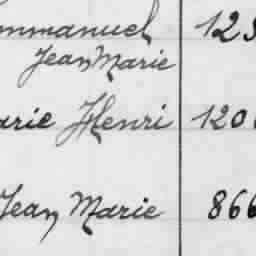 mmanuel 123
Jean Marie
arie Henri 120
Jean Marie 866